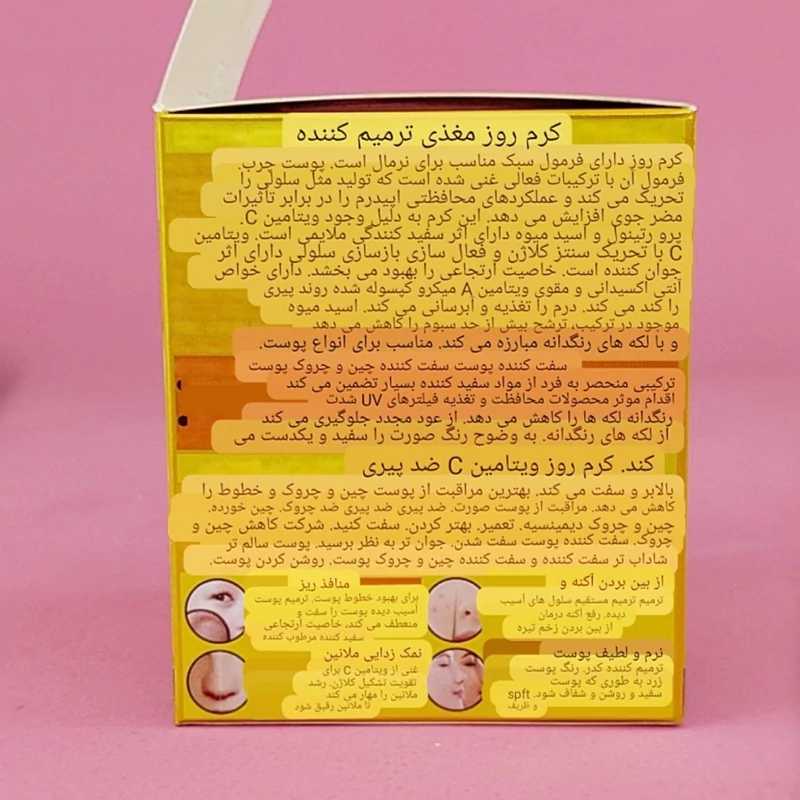 کرم روز مغذی ترمیم کننده
کرم روز دارای فرمول سبک مناسب برای نرمال است. پوست چرب.
فرمول آن با ترکیبات فعالی غنی شده است که تولید مثل سلولی را
تحریک می کند و عملکردهای محافظتی اپیدرم را در برابر تأثیرات
مضر جوی افزایش می دهد. این کرم به دلیل وجود ویتامین C.
پرو رتینول و اسید میوه دارای اثر سفید کنندگی ملایمی است. ویتامین
C با تحریک سنتز کلاژن و فعال سازی بازسازی سلولی دارای اثر
جوان کننده است. خاصیت ارتجاعی را بهبود می بخشد. دارای خواص
آنتی اکسیدانی و مقوی ویتامین A میکرو کپسوله شده روند پیری
را کند می کند. درم را تغذیه و آبرسانی می کند. اسید میوه
موجود در ترکیب، ترشح بیش از حد سبوم را کاهش می دهد
و با لکه های رنگدانه مبارزه می کند. مناسب برای انواع پوست.
سفت کننده پوست سفت کننده چین و چروک پوست
ترکیبی منحصر به فرد از مواد سفید کننده بسیار تضمین می کند
اقدام موثر محصولات محافظت و تغذیه فیلترهای UV شدت
رنگدانه لکه ها را کاهش می دهد. از عود مجدد جلوگیری می کند
از لکه های رنگدانه. به وضوح رنگ صورت را سفید و یکدست می
کند. کرم روز ویتامین C ضد پیری
بالابر و سفت می کند. بهترین مراقبت از پوست چین و چروک و خطوط را
کاهش می دهد. مراقبت از پوست صورت. ضد پیری ضد پیری ضد چروک. چین خورده.
چین و چروک دیمینسیه. تعمیر. بهتر کردن. سفت کنید. شرکت کاهش چین و
چروک. سفت کننده پوست سفت شدن. جوان تر به نظر برسید. پوست سالم تر
شاداب تر سفت کننده و سفت کننده چین و چروک پوست. روشن کردن پوست.
از بین بردن آکنه و
ترمیم ترمیم مستقیم سلول های آسیب
دیده. رفع آکنه درمان
از بین بردن زخم تیره
منافذ ریز
برای بهبود خطوط پوست. ترمیم پوست
آسیب دیده پوست را سفت و
منعطف می کند، خاصیت ارتجاعی
سفید کننده مرطوب کننده
نرم و لطیف پوست
ترمیم کننده کدر. رنگ پوست
زرد به طوری که پوست
سفید و روشن و شفاف شود. spft
و ظریف
نمک زدایی ملانین
غنی از ویتامین C برای
تقویت تشکیل کلاژن. رشد
ملانین را مهار می کند
تا ملانین رقیق شود